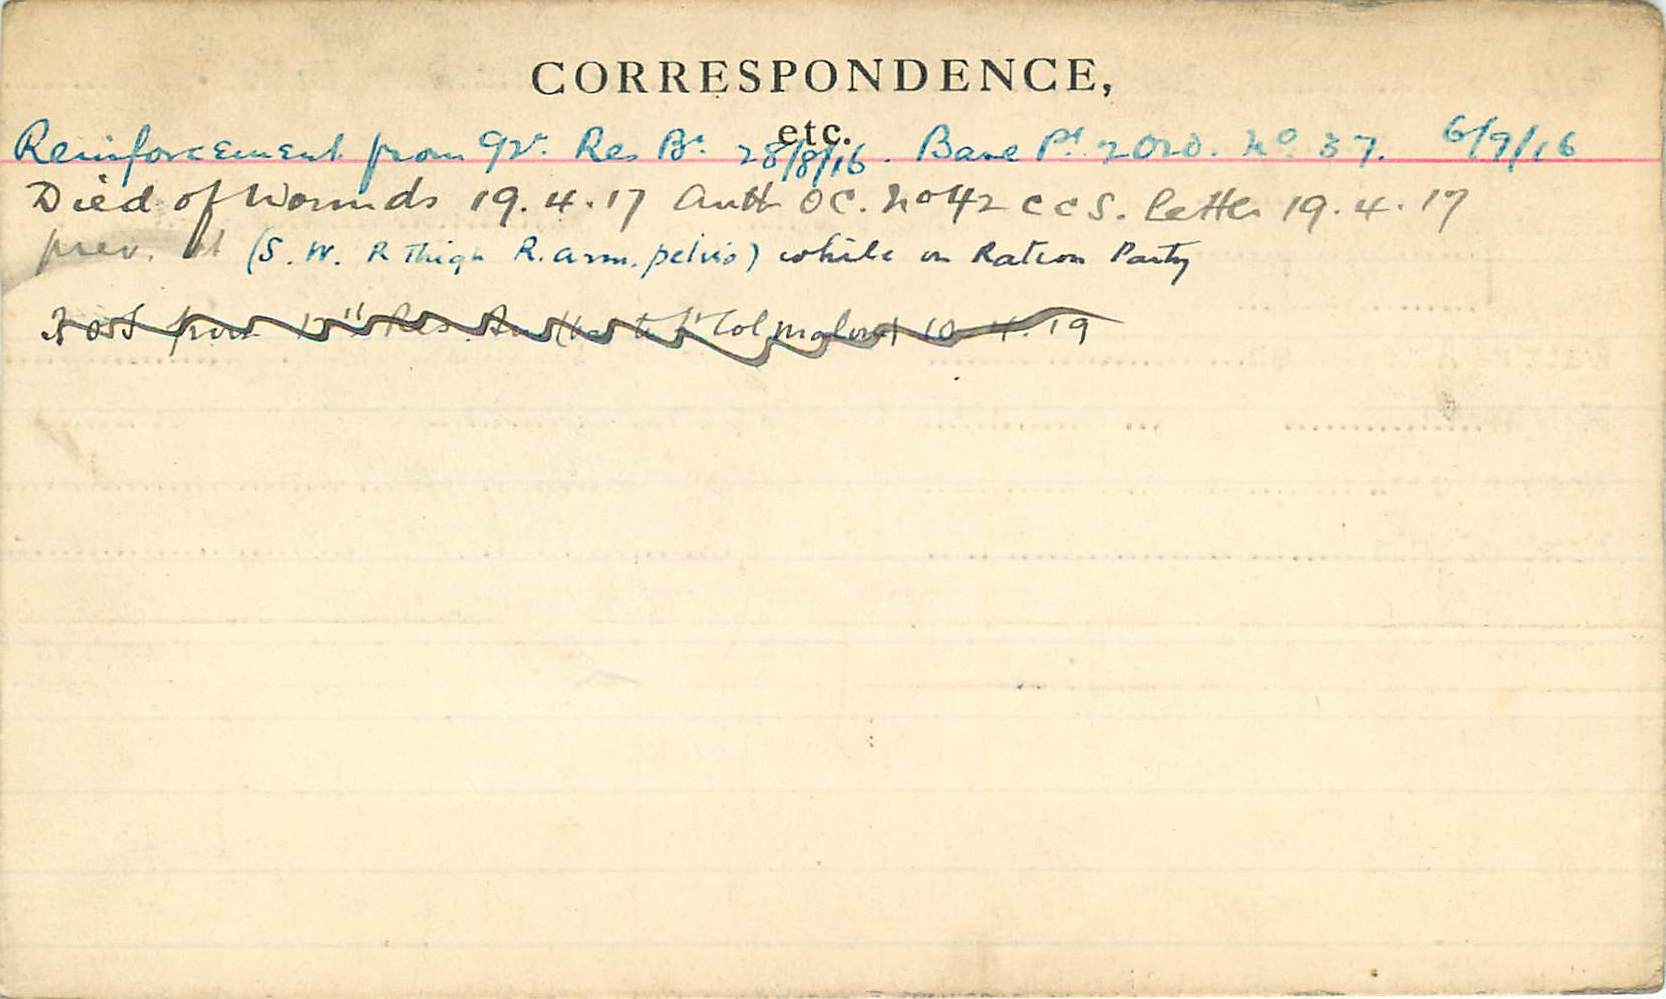 CORRESPONDENCE,
etc.
Reinforcement from 92nd Res Bn 28/8/16. Base Pt 2 Ord. No 37. 6/9/16
Died of Wounds 19.4.17 Auth OC. No 42 CCS. letter 19.4.17
prev. (S. W. R Thigh R. arm. pelvis) while on Ration Party
from Res. Lt Col 10.4.19